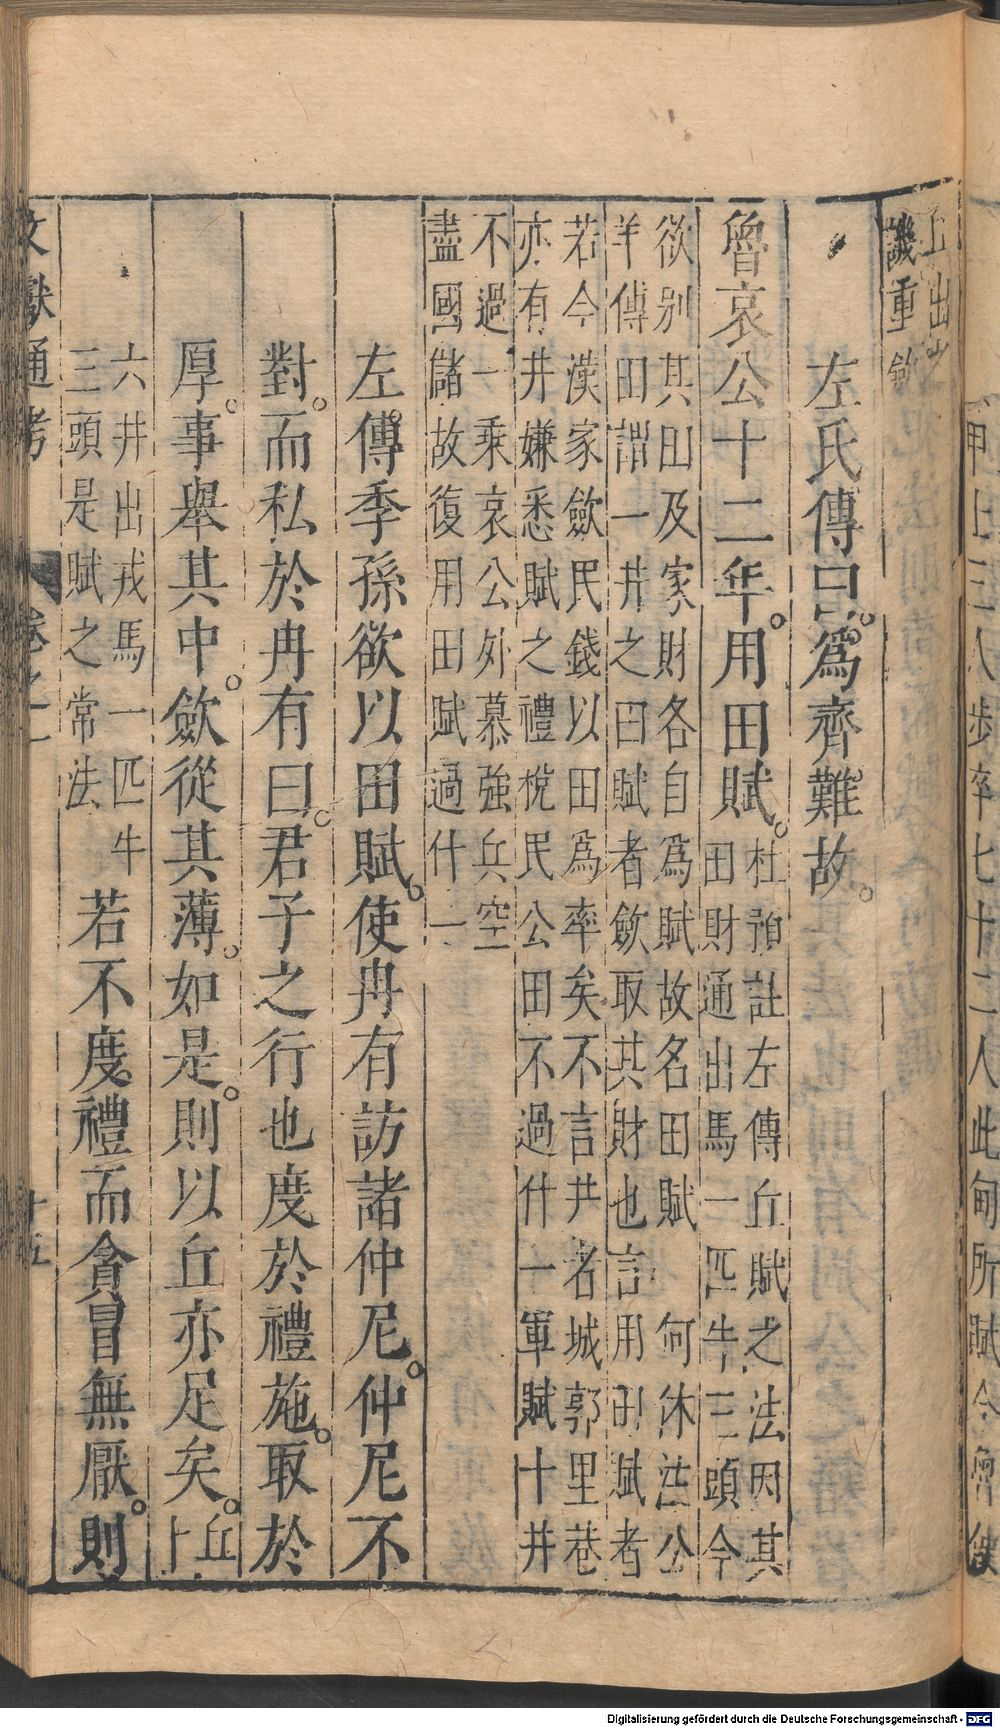 甲士三人步卒七十二人此甸所賦今魯使
丘出之
譏重斂
左氏傳曰爲齊難故
魯哀公十二年用田賦杜預註左傳丘賦之法因其
田財通出馬一匹牛三頭今
欲别其田及家財各自爲賦故名田賦 何休註公
羊傳田謂一井之田賦者斂取其財也言用田賦者
若今漢家斂民錢以田爲率矣不言井者城郭里巷
亦有井嫌悉賦之禮稅民公田不過什一軍賦十井
不過一乘哀公外慕強兵空
盡國儲故復用田賦過什一
左傳季孫欲以田賦使冉有訪諸仲尼仲尼不
對而私於冉有曰君子之行也度於禮施取於
厚事舉其中歛從其薄如是則以丘亦足矣丘
十
六井出戎馬一匹牛
三頭是賦之常法
若不度禮而貪冒無厭則
文獻通考 卷之一 十五
Digitalisierung gefördert durch die Deutsche Forschungsgemeinschaft - DFG